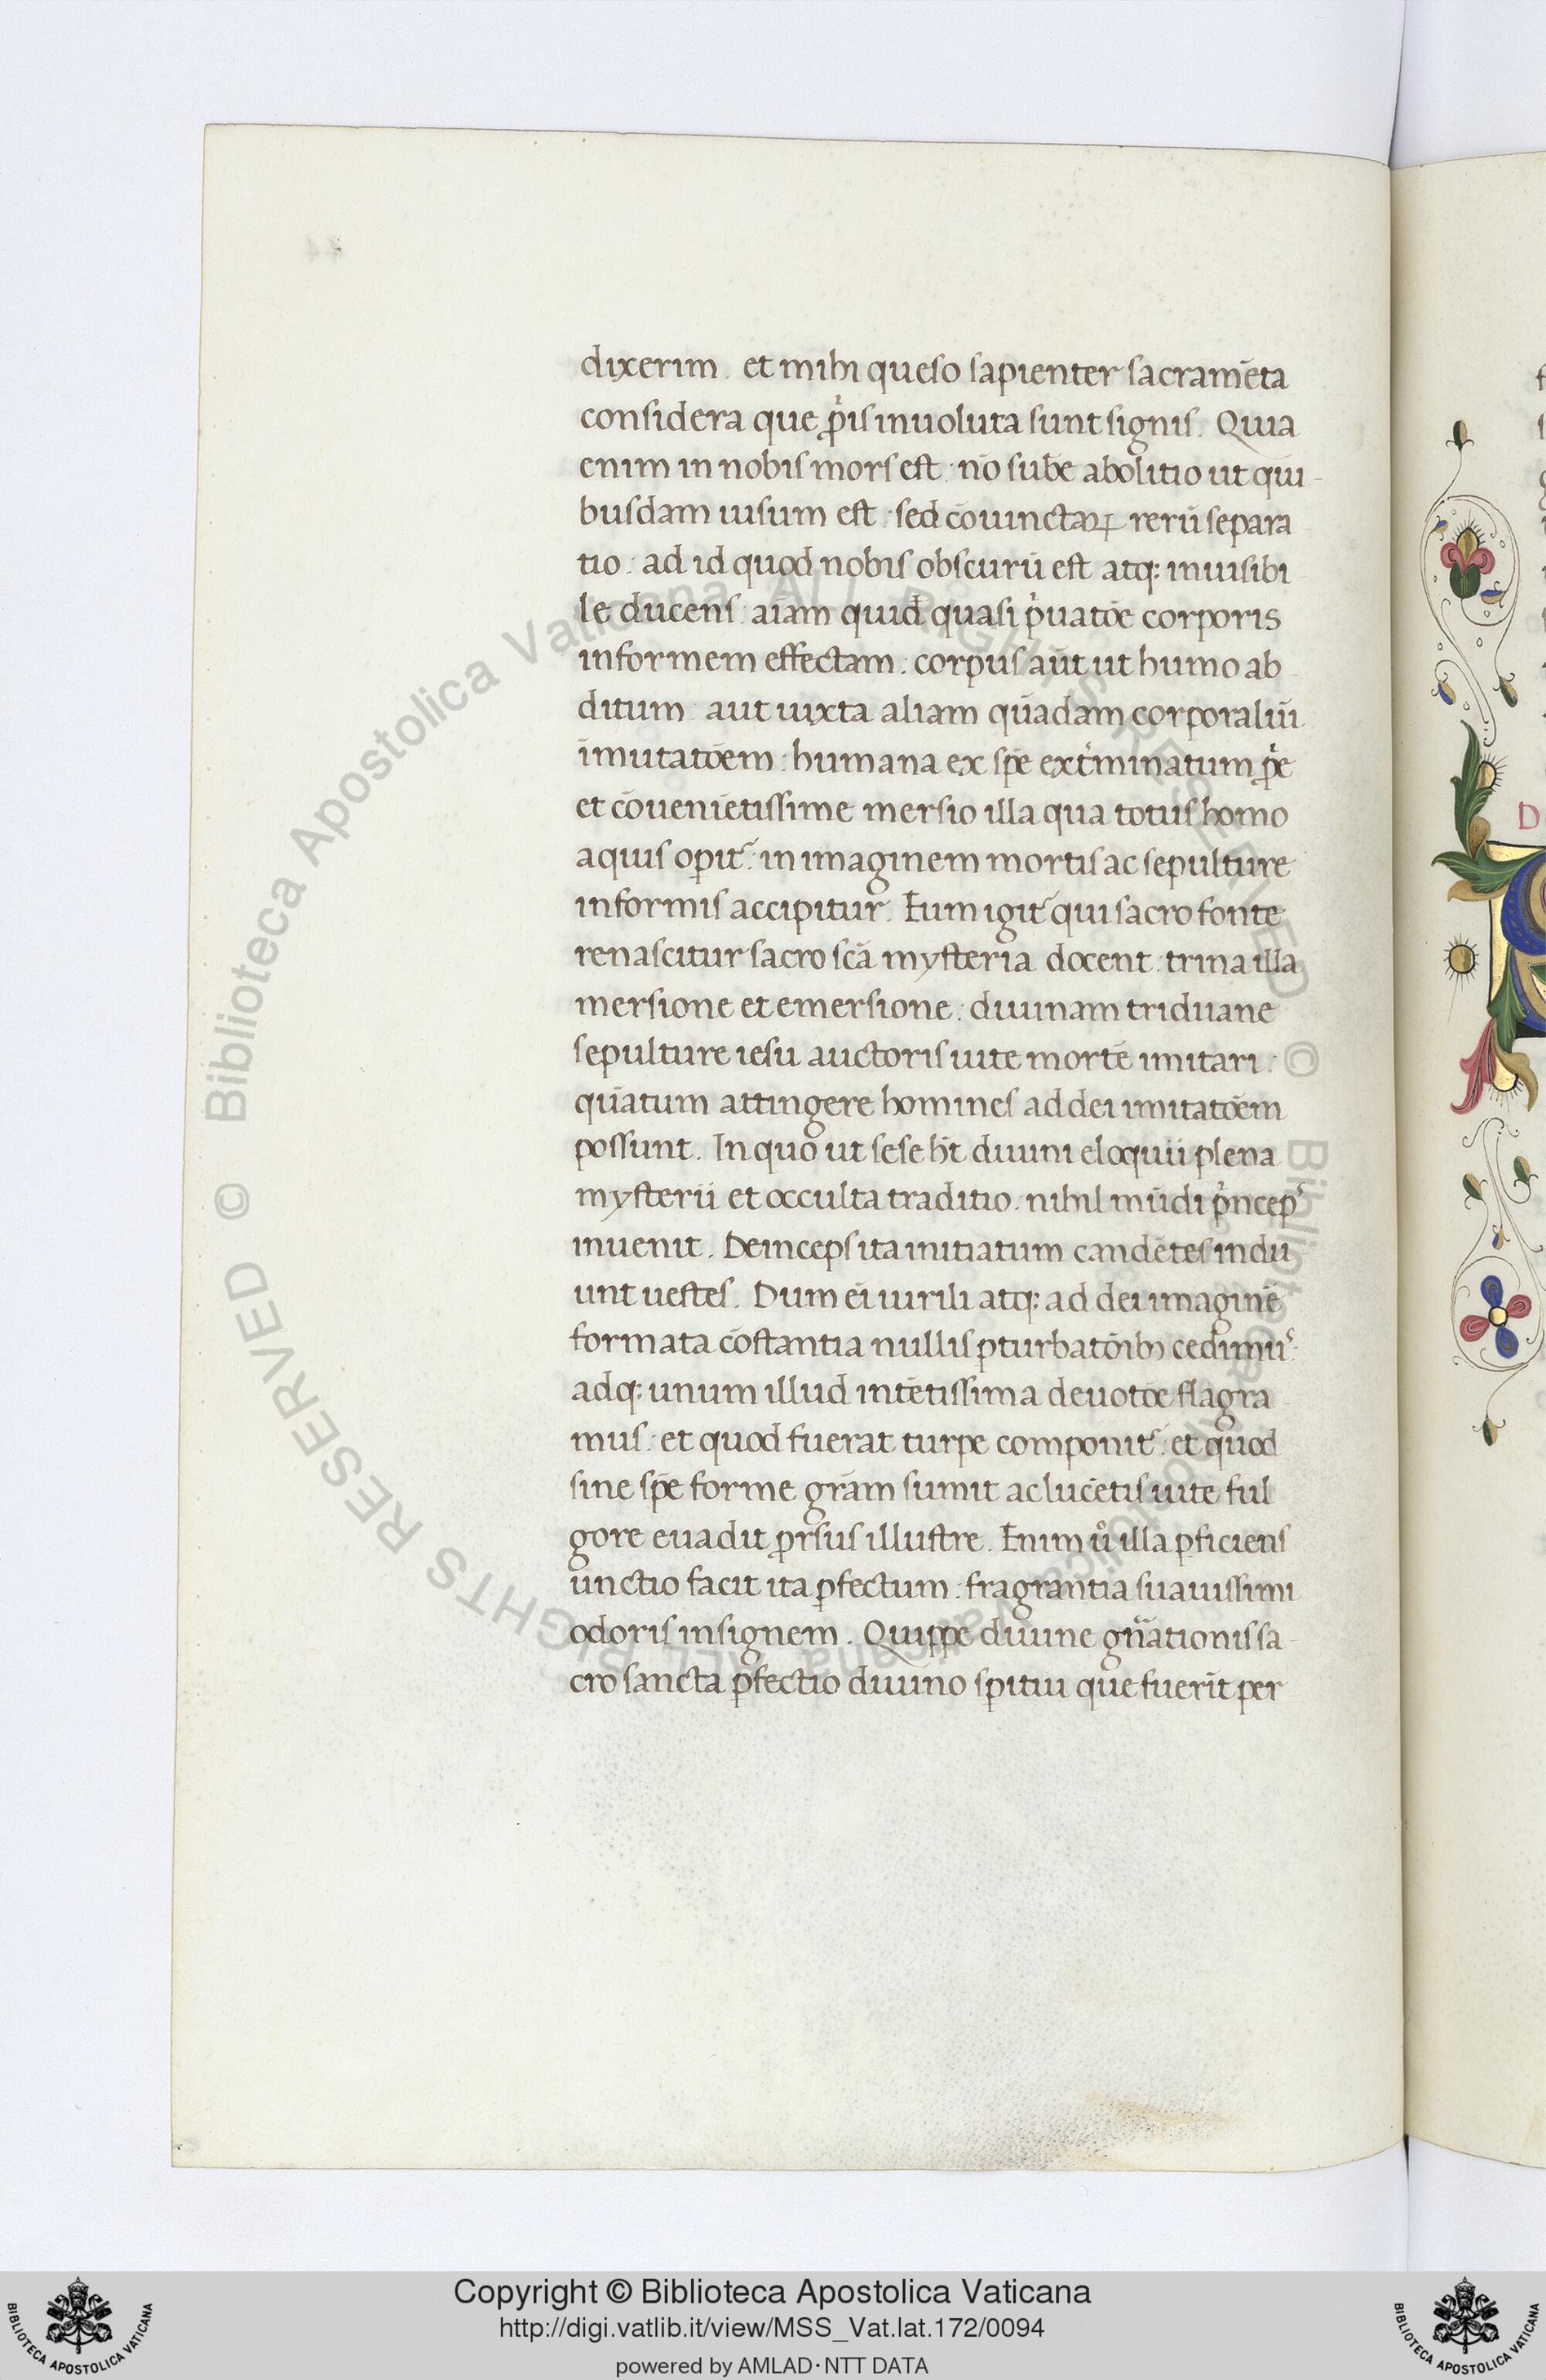 dixerim. et mihi queso sapienter sacramẽta
considera que ꝓ̍is inuoluta sunt signis. Quia
enim in nobis mors est: nō sub̄e abolitio ut qui-
busdam uisum est: sed cōuinctaꝝ rerū separa
tio: ad id quod nobis obscurū est atq; inuisibi
le ducens: aīam quid̄ quasi p̍uatōe corporis
informem effectam: corpus aūt ut humo ab
ditum aut iuxta aliam quādam corporaliū
īmutatōem: humana ex spē ext̍minatum ꝓ̍e
et cōueniētissime mersio illa qua totus homo
aquis oꝑit᷑: in imaginem mortis ac sepulture
informis accipitur. Eum igit᷑ qui sacro fonte
renascitur sacro scā mysteria docent: trina illa
mersione et emersione: diuinam triduane
sepulture iesu auctoris uite mortē imitari:
quātum attingere homines ad dei imitatōem
possunt. In quo ut sese ht̄ diuini eloquii plena
mysterii et occulta traditio: nihil mūdi p̍ncepˢ
inuenit. Deinceps ita initiatum candētes indu
unt uestes. Dum ei uirili atq; ad dei imaginē
formata cōstantia nullis ꝑturbatōibꝫ cedimuˢ:
adq; unum illud intētissima deuotōe flagra
mus: et quod fuerat turpe componit᷑: et quod
sine spē forme grām sumit ac lucētis uite ful
gore euadit ꝓrsus illustre. Enim uͦ illa ꝑficiens
unctio facit ita ꝑfectum: fragrantia suauissimi
odoris insignem. Quippe diuine gn̄ationis sa-
cro sancta ꝑfectio diuino spiritui que fuerīt per
Copyright © Biblioteca Apostolica Vaticana
http://digi.vatlib.it/view/MSS_Vat.lat.172/0094
powered by AMLAD·NTT DATA
© Biblioteca Apostolica Vaticana ALL RIGHTS RESERVED
© Biblioteca Apostolica Vaticana ALL RIGHTS RESERVED
BIBLIOTECA APOSTOLICA VATICANA
BIBLIOTECA APOSTOLICA VATICANA